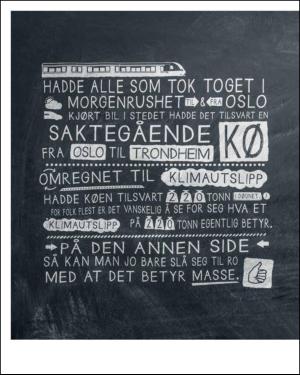 HADDE ALLE SOM TOK TOGET I
MORGENRUSHET TIL & FRA OSLO
KJØRT BIL I STEDET HADDE DET TILSVART EN
SAKTEGÅENDE KØ
FRA OSLO TIL TRONDHEIM
OMREGNET TIL KLIMAUTSLIPP
HADDE KØEN TILSVART 220 TONN I DØGNET!
FOR FOLK FLEST ER DET VANSKELIG Å SE FOR SEG HVA ET
KLIMAUTSLIPP PÅ 220 TONN EGENTLIG BETYR.
PÅ DEN ANNEN SIDE
SÅ KAN MAN JO BARE SLÅ SEG TIL RO
MED AT DET BETYR MASSE.